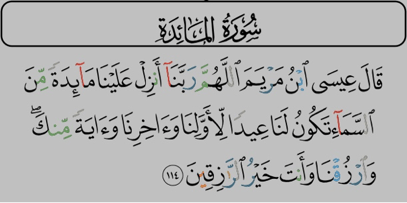 سُورَةُ المَائِدَة
قَالَ عِيسَى ٱبۡنُ مَرۡيَمَ ٱللَّهُمَّ رَبَّنَآ أَنزِلۡ عَلَيۡنَا مَآئِدَةٗ مِّنَ
ٱلسَّمَآءِ تَكُونُ لَنَا عِيدٗا لِّأَوَّلِنَا وَءَاخِرِنَا وَءَايَةٗ مِّنكَۖ
وَٱرۡزُقۡنَا وَأَنتَ خَيۡرُ ٱلرَّٰزِقِينَ ١١٤